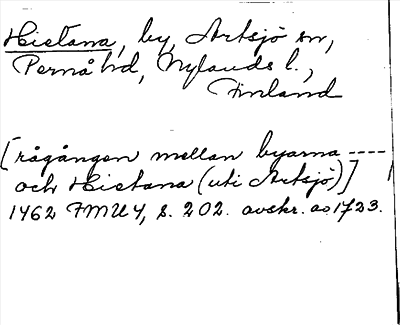 Hietana, by, Artsjö sn,
Pernå hd, Nylands l.,
Finland
[rågången mellan byarna ----
och Hietana (uti Artsjö)]
1462 FMU 4, s. 202. avskr. av 1723.